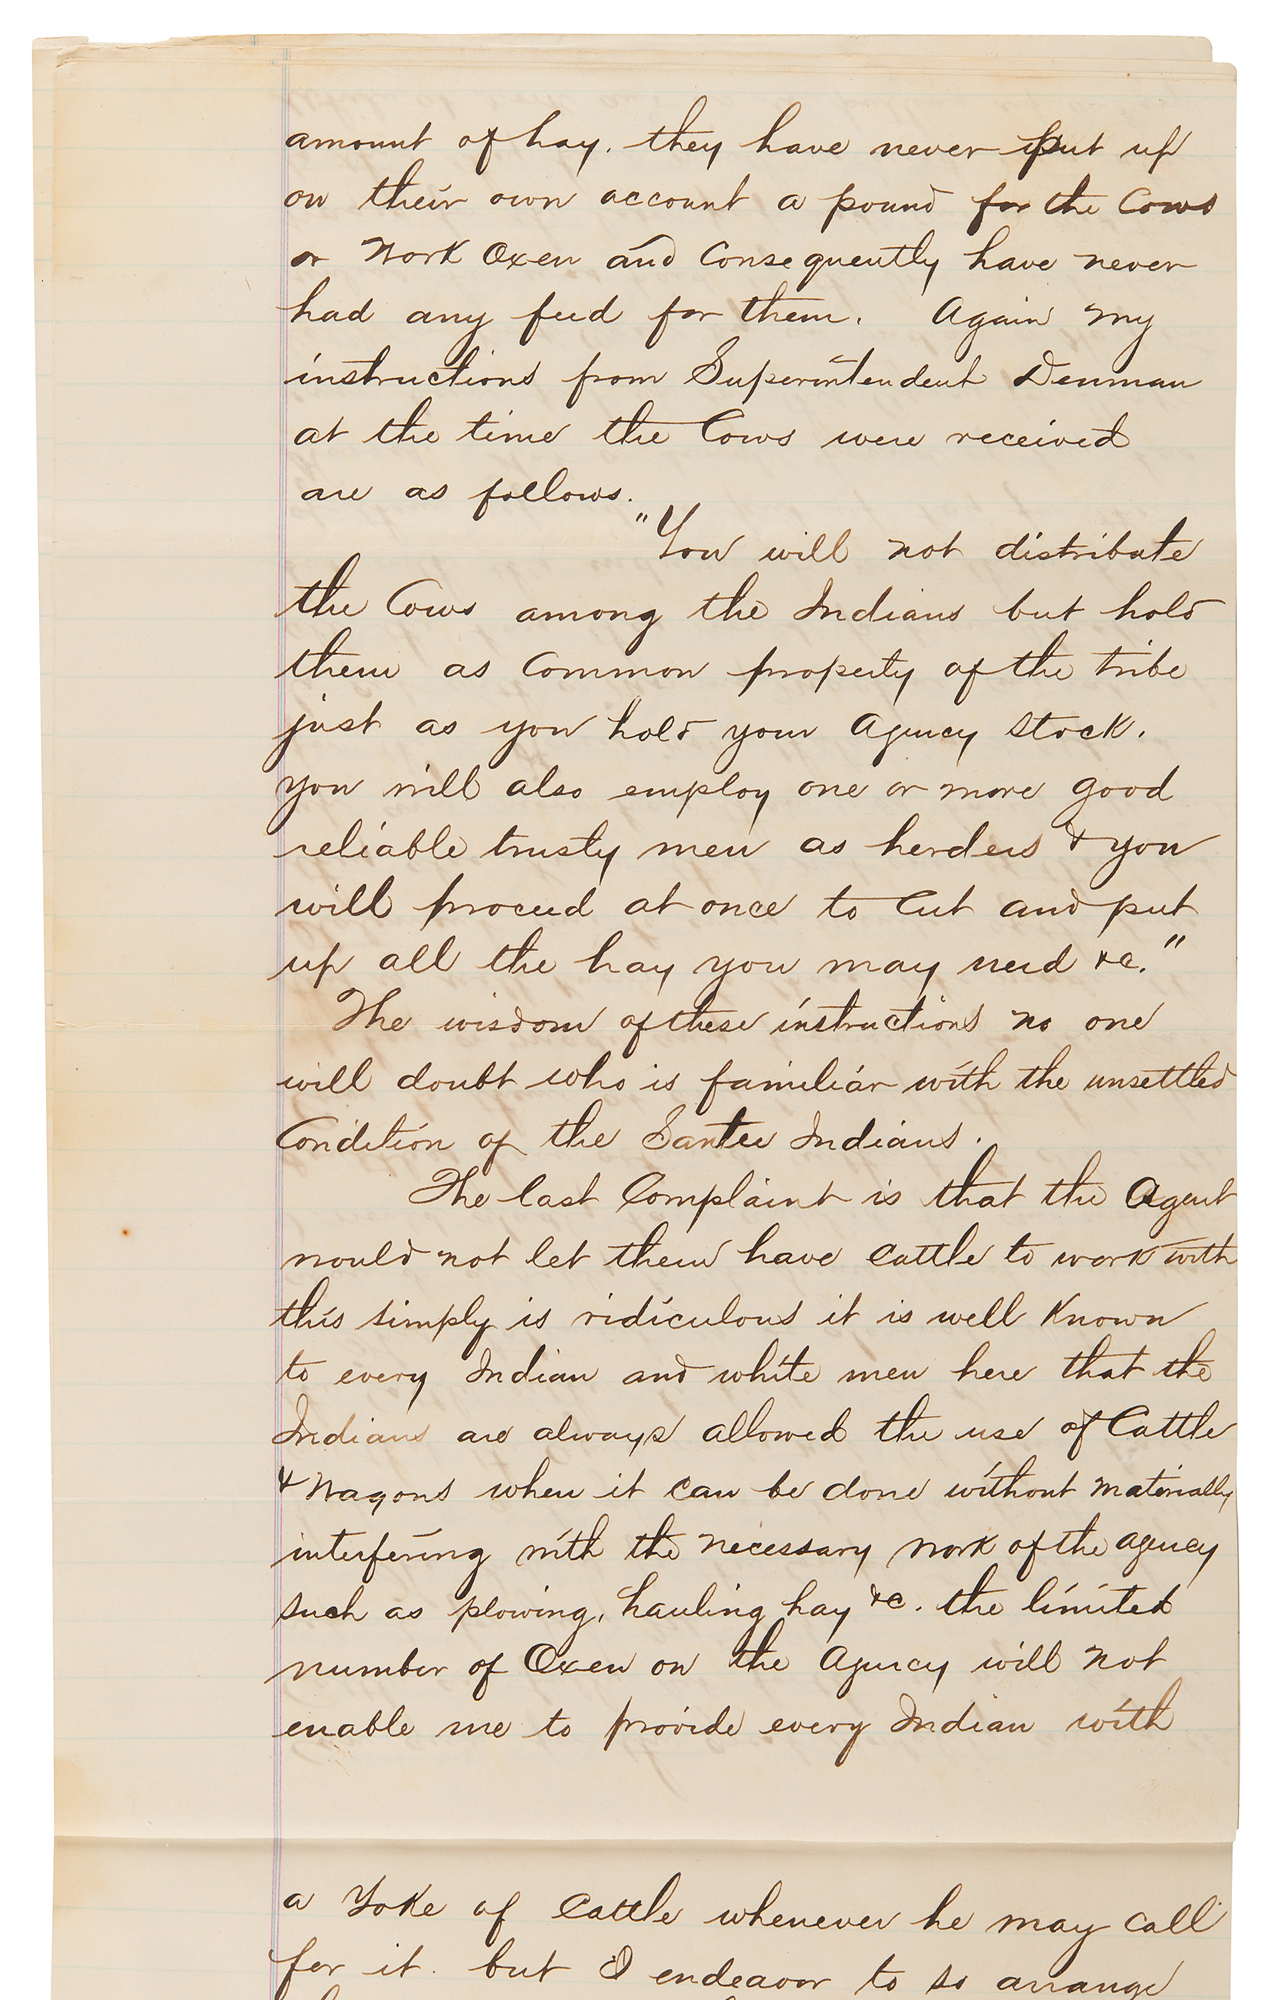 amount of hay. they have never put up
on their own account a pound for the Cows
or Work Oxen and Consequently have never
had any feed for them. Again my
instructions from Superintendent Denman
at the time the Cows were received
are as follows.
"You will not distribute
the Cows among the Indians but hold
them as Common property of the tribe
just as you hold your Agency Stock.
you will also employ one or more good
reliable trusty men as herders & you
will proceed at once to Cut and put
up all the hay you may need &c."
The wisdom of these instructions no one
will doubt who is familiar with the unsettled
Condition of the Santee Indians.
The last Complaint is that the Agent
would not let them have Cattle to work with
this simply is ridiculous it is well Known
to every Indian and white men here that the
Indians are always allowed the use of Cattle
& Wagons when it can be done without materially
interfering with the necessary work of the agency
such as plowing, hauling hay &c. the limited
number of Oxen on the Agency will not
enable me to provide every Indian with
a Yoke of Cattle whenever he may call
for it. but I endeavor to so arrange